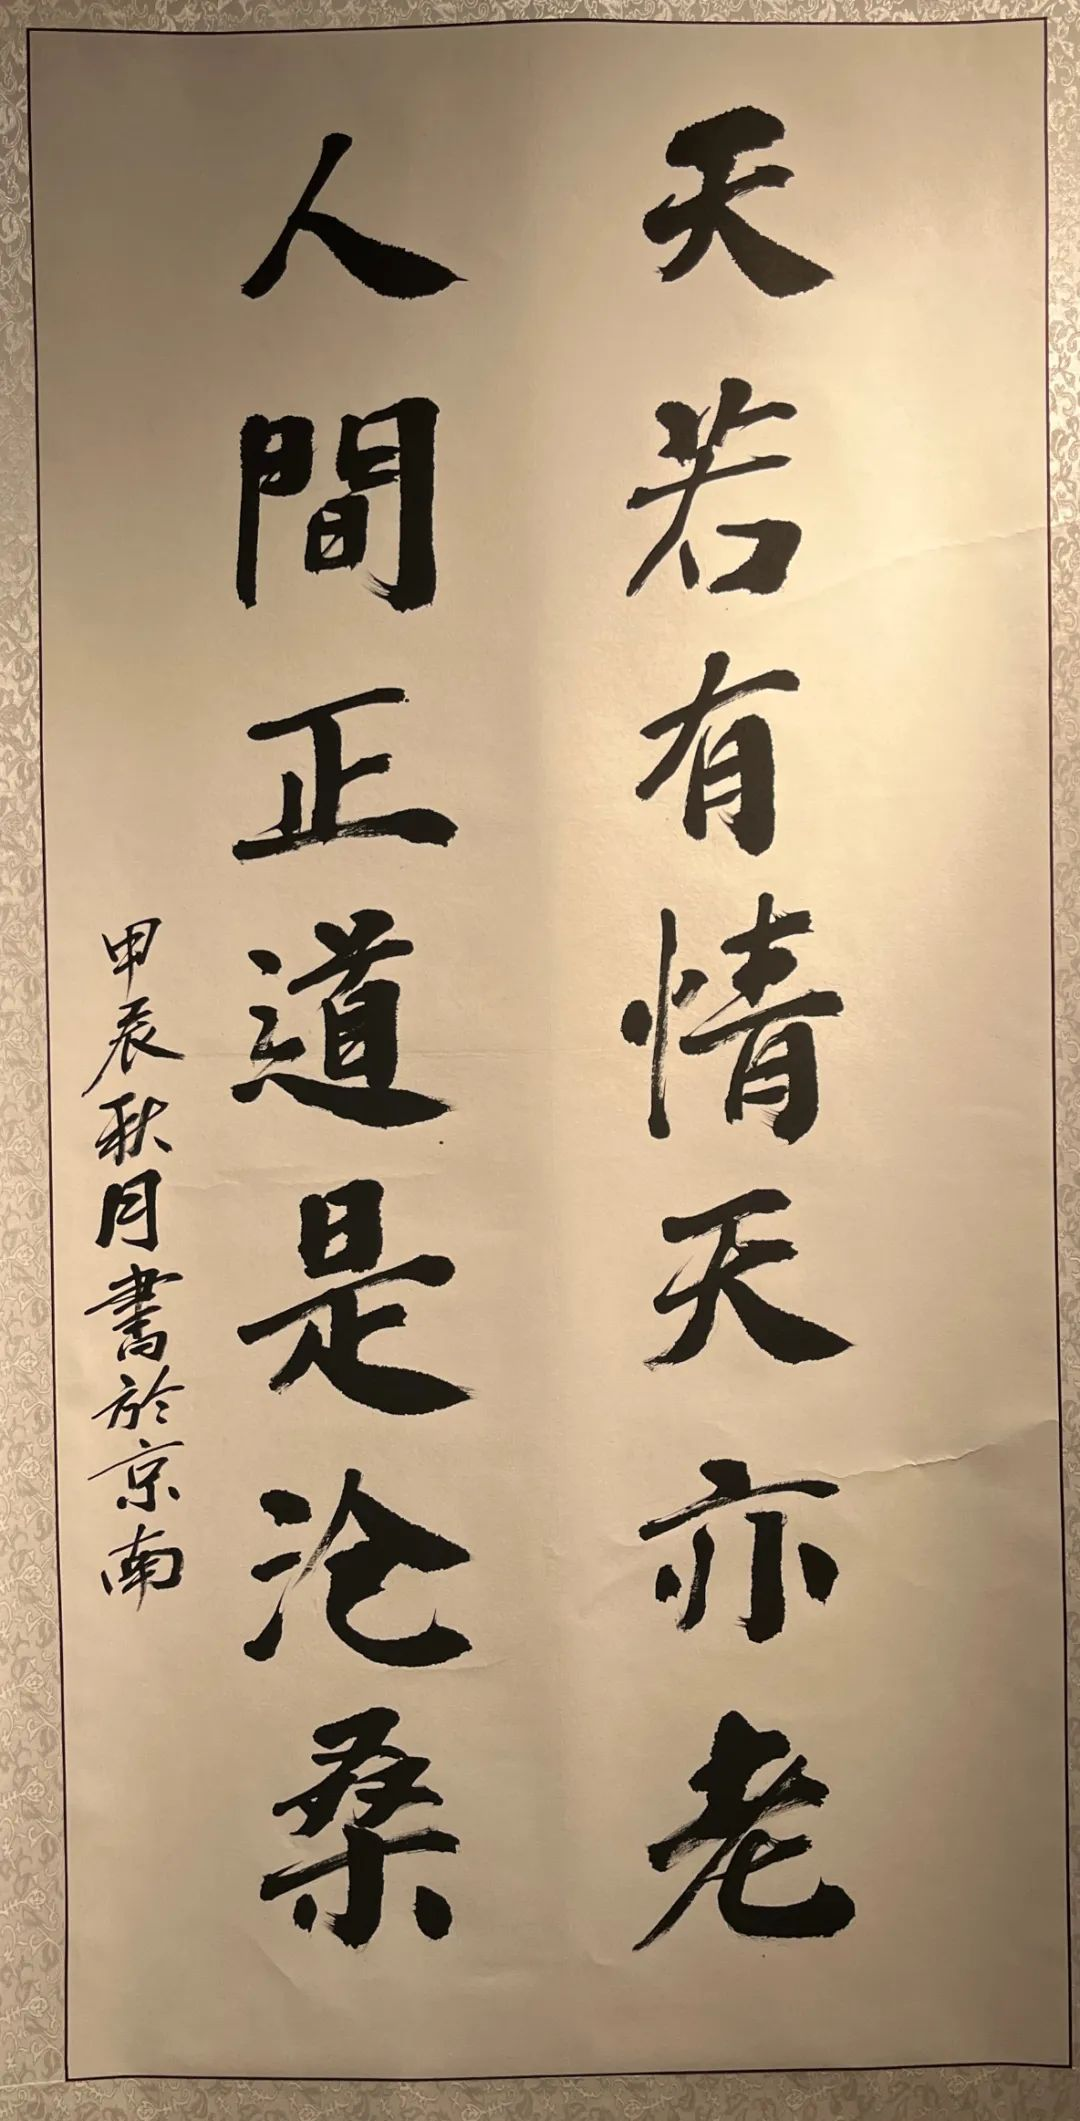 天若有情天亦老
人間正道是沧桑
甲辰秋月書於京南